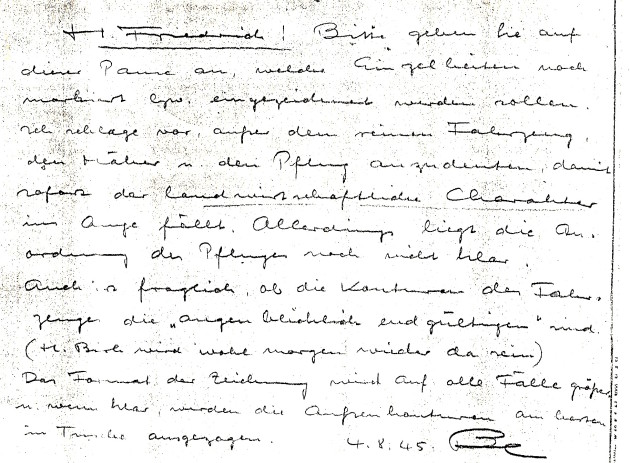 H. Friedrich! Bitte geben Sie auf
dieser Pause an, welche Einzelheiten noch
markiert bzw. eingezeichnet werden sollen.
Ich schlage vor, außer dem reinen Fahrzeug,
den Mäher u. den Pflug anzudeuten, damit
sofort der landwirtschaftliche Charakter
ins Auge fällt. Allerdings liegt die An-
ordnung des Pfluges noch nicht klar.
Auch is fraglich, ob die Konturen des Fahr-
zeuges die „augenblicklich endgültigen" sind.
(H. Birk wird wohl morgen wieder da sein)
Das Format der Zeichnung wird auf alle Fälle größer
u. wenn klar, werden die Außenkonturen am besten
in Tusche ausgezogen. 4.8.45.